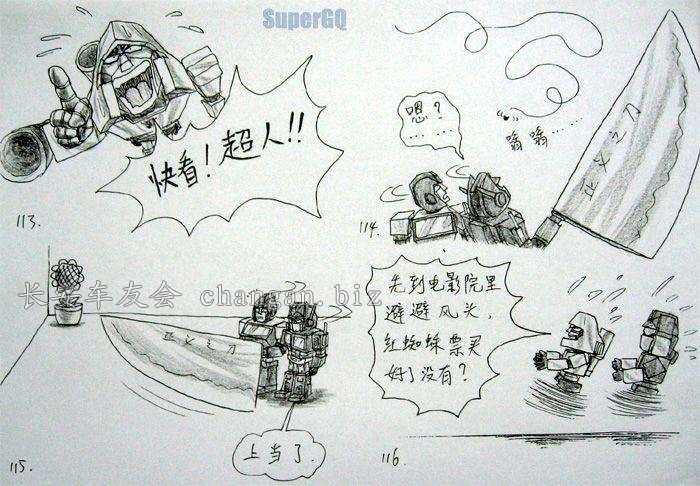 SuperGQ
快看！超人!!
113.
嗯？
……
嗡嗡……
正义之刀
114.
长安车友会 changan.biz
正义之刀
上当了.
115.
先到电影院里
避避风头，
红蜘蛛票买
好了没有？
116.